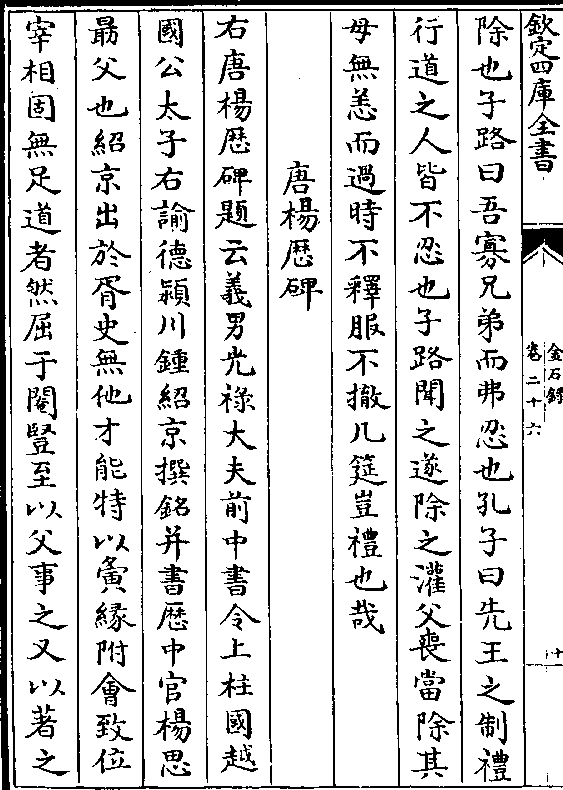 欽定四庫全書
金石錄
卷二十六
十
除也子路曰吾寡兄弟而弗忍也孔子曰先王之制禮
行道之人皆不忍也子路聞之遂除之灌父喪當除其
母無恙而過時不釋服不撤几筵豈禮也哉
唐楊厯碑
右唐楊厯碑題云義男光祿大夫前中書令上柱國越
國公太子右諭德潁川鍾紹京撰銘并書厯中官楊思
朂父也紹京出於胥史無他才能特以夤緣附會致位
宰相固無足道者然屈于閹豎至以父事之又以著之